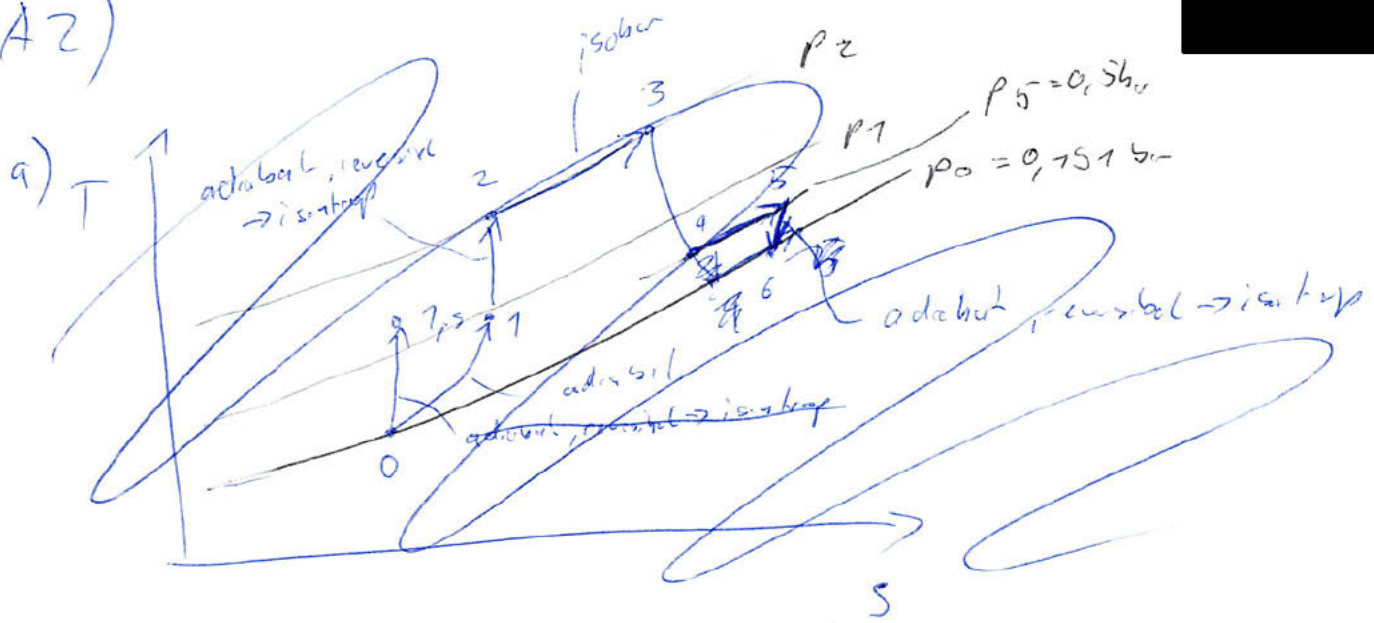 A2)
isobar
p2
3
p5 = 0,5 bar
p1
a) T
adiabat, reversibel
→ isentrop
2
p0 = 0,191 bar
5
4
1,s
1
6
adiabat, reversibel → isentrop
adiabat
adiabat, reversibel → isentrop
0
S